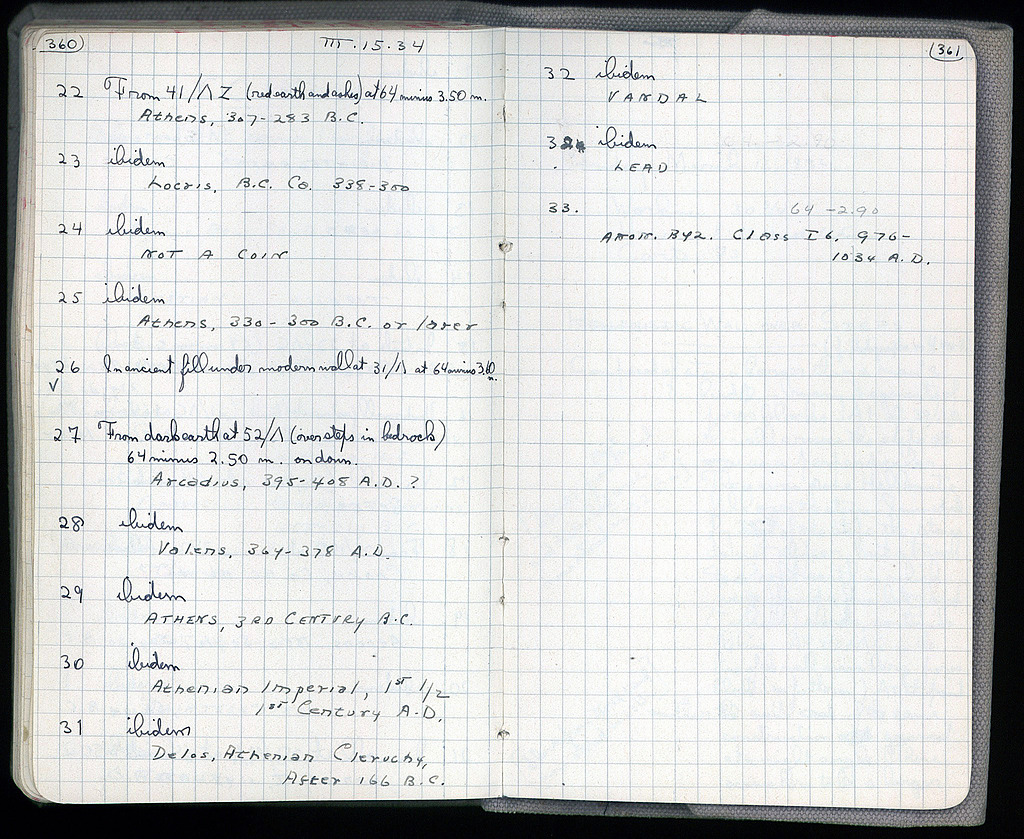 360
III.15.34
22 From 41/Λ Z (red earth and ashes) at 64 minus 3.50 m.
Athens, 307-283 B.C.
23 ibidem
Locris, B.C. Ca. 338-300
24 ibidem
NOT A COIN
25 ibidem
Athens, 330-300 B.C. or later
26 In ancient fill under modern wall at 31/Λ at 64 minus 3.60 m.
✓
27 From dark earth at 52/Λ (over steps in bedrock)
64 minus 2.50 m. on down.
Arcadius, 395-408 A.D. ?
28 ibidem
Valens, 364-378 A.D.
29 ibidem
ATHENS, 3RD CENTURY B.C.
30 ibidem
Athenian Imperial, 1st 1/2
1st Century A.D.
31 ibidem
Delos, Athenian Cleruchy,
After 166 B.C.
361
32 ibidem
VANDAL
32a ibidem
LEAD
33. 64 -2.90
Anon. Byz. Class I6, 976-
1034 A.D.